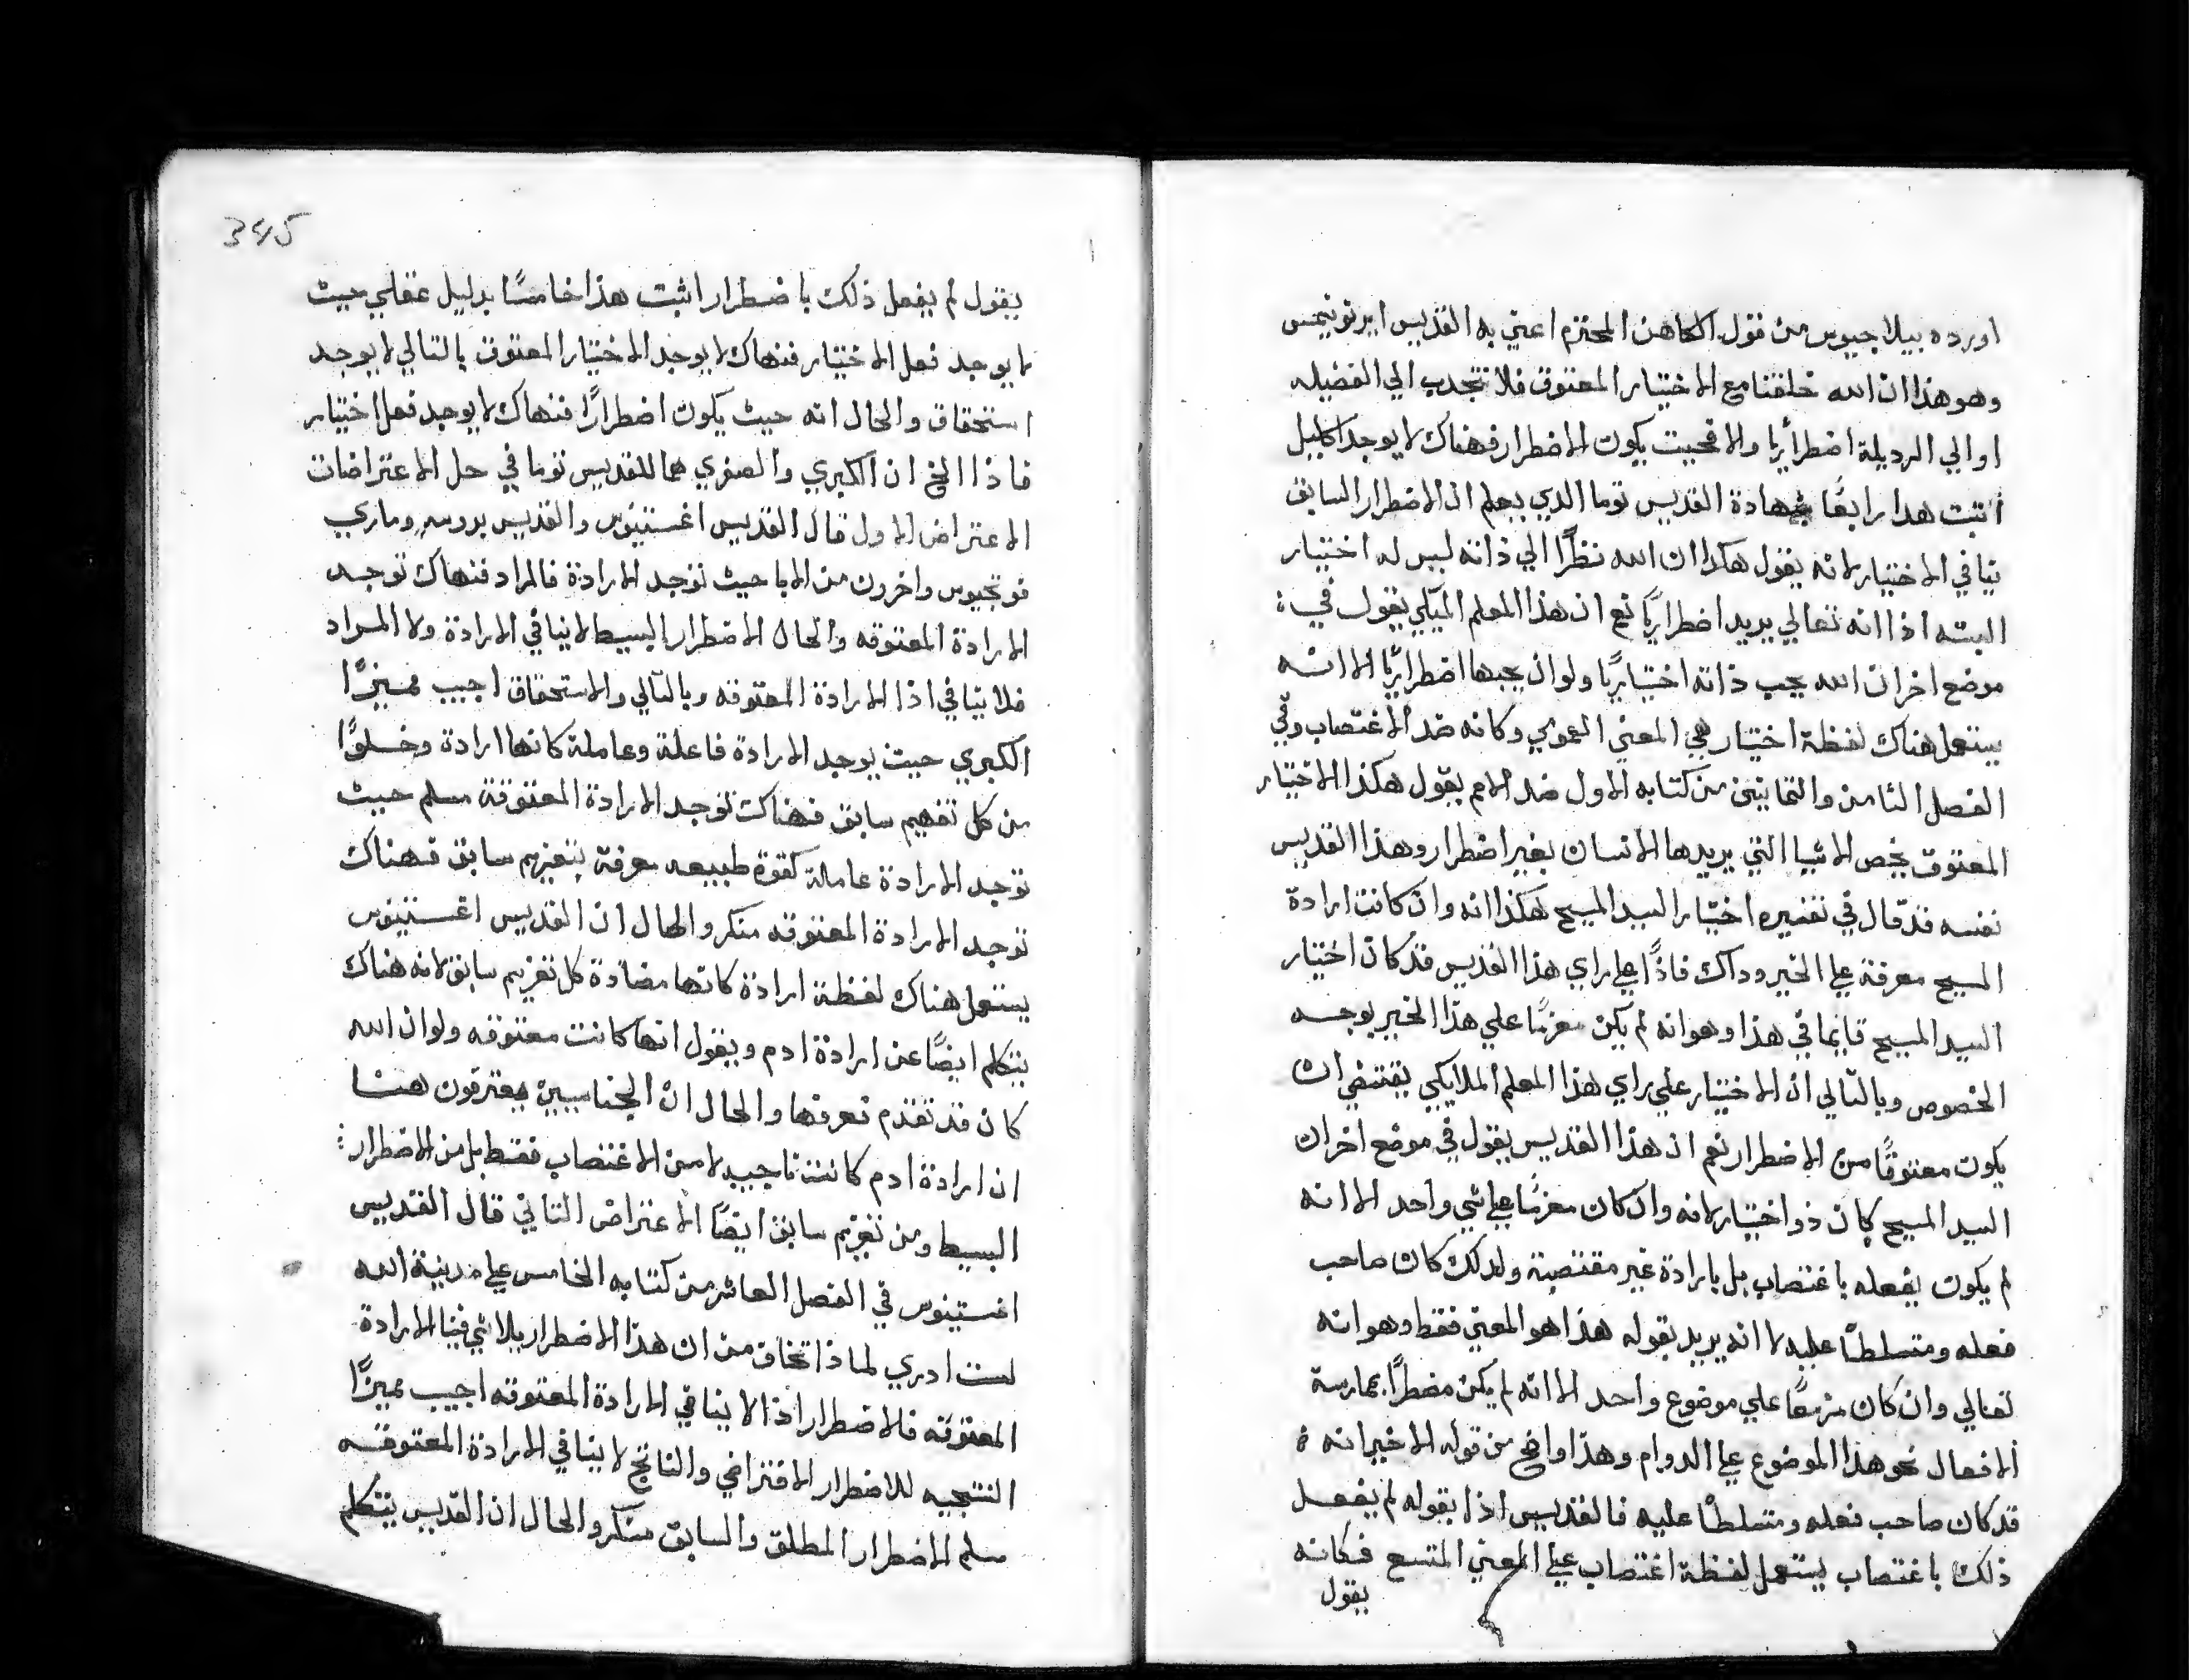 اورده بيلاجيوس من قول الكاهن المحترم اعني به القديس ايرنونيمس
وهو هذا ان الله خلقنا مع الاختيار المعتوق فلا ننجدب الي الفضيله
او الي الرديلة اضطراريا والا فحيت يكون الاضطرار فهناك لا يوجد اكليل
اتبت هدا رابعًا بشهادة القديس توما الدي يعلم ان الاضطرار السابق
ينافي الاختيار لانه يقول هكدا ان الله نظرًا الي ذاته ليس له اختيار
البته اذا انه تعالي يريد اضطراريًا نعم ان هذا المعلم الملكي يقول في
موضع اخر ان الله يحب ذاته اختياريًا ولو ان يحبها اضطراريًا الا انه
يستعمل هناك لفظة اختيار علي المعني العمومي وكانه ضد الاغتصاب وفي
الفصل الثامن والثمانين من كتابه الاول ضد الامم يقول هكذا الاختيار
المعتوق يخص الاشيا التي يريدها الانسان بغير اضطرار وهذا القديس
نفسه قد قال في تفسيره اختيار السيد المسيح هكذا انه وان كانت ارادة
المسيح معرفة علي الخير وداك فاذًا علي راي هذا القديس قد كان اختيار
السيد المسيح قايما في هذا وهو انه لم يكن معزمًا علي هذا الخير بوجه
الخصوص وبالتالي ان الاختيار علي راي هذا المعلم الملايكي يقتضي ان
يكون معتوقًا من الاضطرار نعم ان هذا القديس يقول في موضع اخر ان
السيد المسيح كان ذو اختيار لانه وان كان معزمًا علي شي واحد الا انه
لم يكون يفعله باغتصاب بل بارادة غير مقتصبة ولدلك كان صاحب
فعله ومتسلطًا عليه لا انه يريد بقوله هذا هو المعني فقط وهو انه
تعالي وان كان مزمعًا علي موضوع واحد الا انه لم يكن مضطرًا بممارسة
الافعال نحو هذا الموضوع علي الدوام وهذا واضح من قوله الاخير انه
قد كان صاحب فعله ومتسلطًا عليه فالقديس اذا بقوله لم يفعل
ذلك باغتصاب يستعمل لفظة اغتصاب علي المعني المتسع فكانه
يقول
345
يقول لم يفعل ذلك باضطرار اثبت هذا خامسًا بدليل عقلي حيث
لا يوجد فعل الاختيار فنهاك لا يوجد الاختيار المعتوق بالتالي لا يوجد
استحقاق والحال انه حيث يكون اضطرارًا فنهاك لا يوجد فعل اختيار
فاذا الخ ان الكبري والصغري هما للقديس توما في حل الاعتراضات
الاعتراض الاول قال القديس اغستينوس والقديس بروسبر وماري
فولجيوس واخرون من الابا حيث توجد الارادة فالمراد فنهاك توجد
الارادة المعتوقه والحال الاضطرار البسيط لا ينافي الارادة ولا المراد
فلا ينافي اذا الارادة المعتوقه وبالتالي والاستحقاق اجيب مميزًا
الكبري حيث يوجد الارادة فاعلة وعاملة كانها ارادة وخلوًا
من كل تفهيم سابق فهناك توجد الارادة المعتوقة مسلم حيث
توجد الارادة عاملة كقوة طبيعه معرفة بتعزيم سابق فهناك
توجد الارادة المعتوقه منكر والحال ان القديس اغستينوس
يستعمل هناك لفظة ارادة كانها مضادة كل تعزيم سابق لانه هناك
يتكلم ايضًا عن ارادة ادم ويقول انها كانت معتوقه ولو ان الله
كان قد تقدم فعرفها والحال ان الجنانسيين يعترفون هنا
ان ارادة ادم كانت ناجيه لا من الاغتصاب فقط بل من الاضطرار:
البسيط ومن تعزيم سابق ايضًا الاعتراض التاني قال القديس
اغستينوس في الفصل العاشر من كتابه الخامس علي مدينة الله
لست ادري لماذا تخاف من ان هذا الاضطرار يلاشي فينا الارادة
المعتوقه فالاضطرار اذا لا ينافي الارادة المعتوقه اجيب مميزًا
النتيجيه للاضطرار الافتراضي والناتج لا ينافي الارادة المعتوقه
مسلم الاضطرار المطلق والسابق منكر والحال ان القديس يتكلم